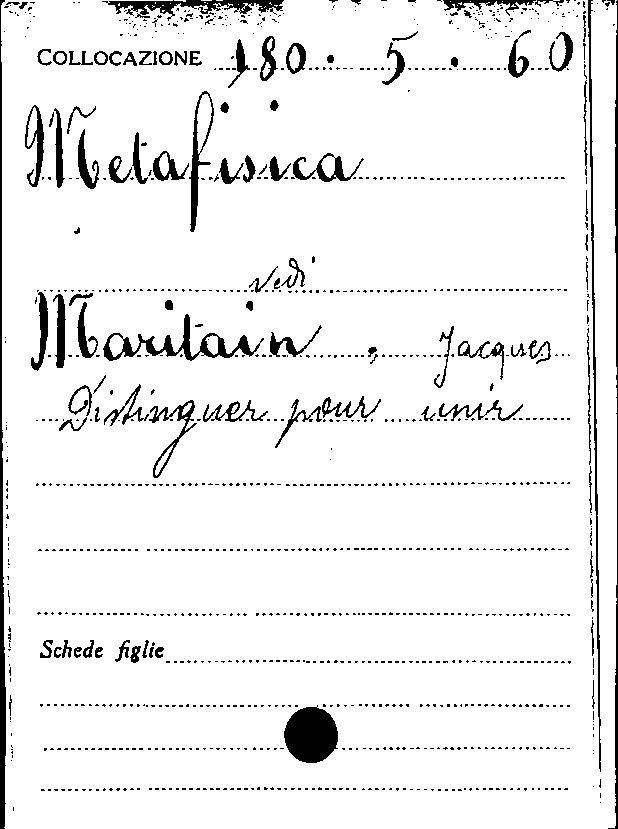 COLLOCAZIONE 180 · 5 · 60
Metafisica
vedi
Maritain, Jacques
Distinguer pour unir
Schede figlie